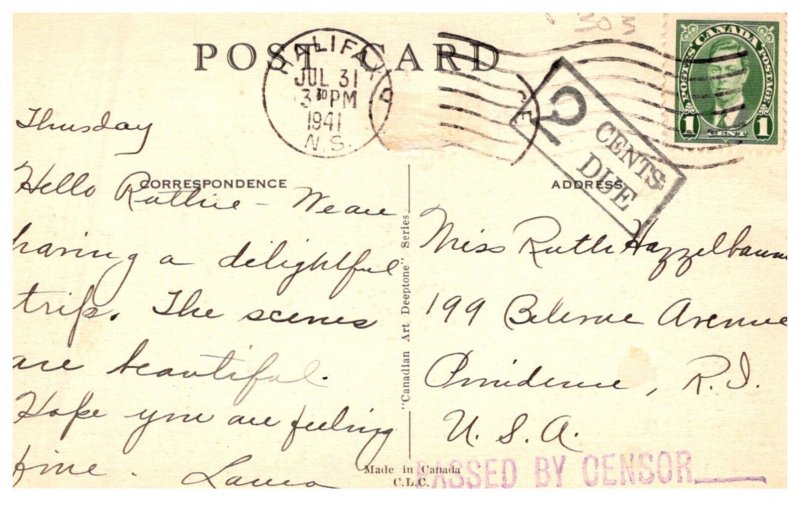 POST CARD
HALIFAX
JUL 31
3 30 PM
1941
N.S.
2 CENTS
DUE
POSTES CANADA POSTAGE
1 CENT 1
CORRESPONDENCE
ADDRESS
Thursday
Hello Ruthie - We are
having a delightful
trip. The scenes
are beautiful.
Hope you are feeling
fine. Laura
"Canadian Art Deeptone" Series
Miss Ruth Hazzelbaum
199 Belerue Avenue
Providence, R.I.
U.S.A.
Made in Canada
C.L.C.
PASSED BY CENSOR